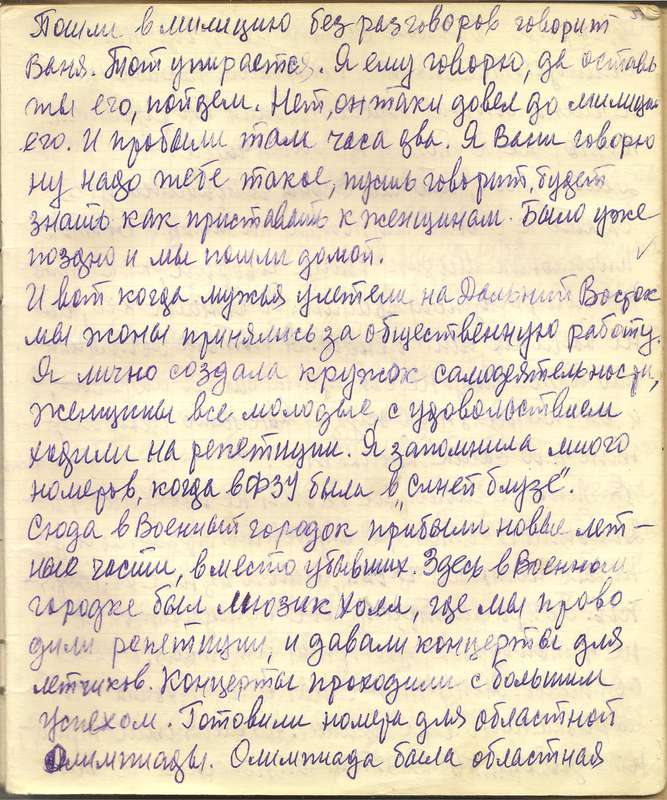 Пошли в милицию без разговоров говорит
Ваня. Тот упирается. Я ему говорю, да оставь
ты его, пойдем. Нет, он таки довел до милиции
его. И пробыли там часа два. Я Вани говорю
ну надо тебе такое, пусть говорит, будет
знать как приставать к женщинам. Было уже
поздно и мы пошли домой.
И вот когда мужья улетели на Дальний Восток
мы жоны принялись за общественную работу.
Я лично создала кружок самодеятельности,
женщины все молодые, с удовольствием
ходили на репетиции. Я запомнила много
номеров, когда в ФЗУ была в „Синей блузе".
Сюда в Военный городок прибыли новые лет-
ные части, вместо убывших. Здесь в Военном
городке был Мюзик Холл, где мы прово
дили репетиции, и давали концерты для
летчиков. Концерты проходили с большим
успехом. Готовили номера для областной
Олимпиады. Олимпиада была областная